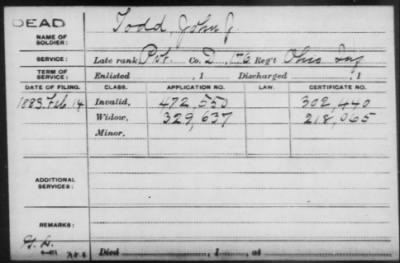 DEAD
NAME OF SOLDIER: Todd, John J.
SERVICE: Late rank, Pvt. Co. D, 176 Reg't Ohio Inf
TERM OF SERVICE: Enlisted , 1 Discharged , 1
DATE OF FILING. CLASS. APPLICATION NO. LAW. CERTIFICATE NO.
1883. Feb. 14 Invalid, 472,550 302,440
Widow, 329,637 218,065
Minor,
ADDITIONAL SERVICES:
REMARKS:
Died , 1 , at